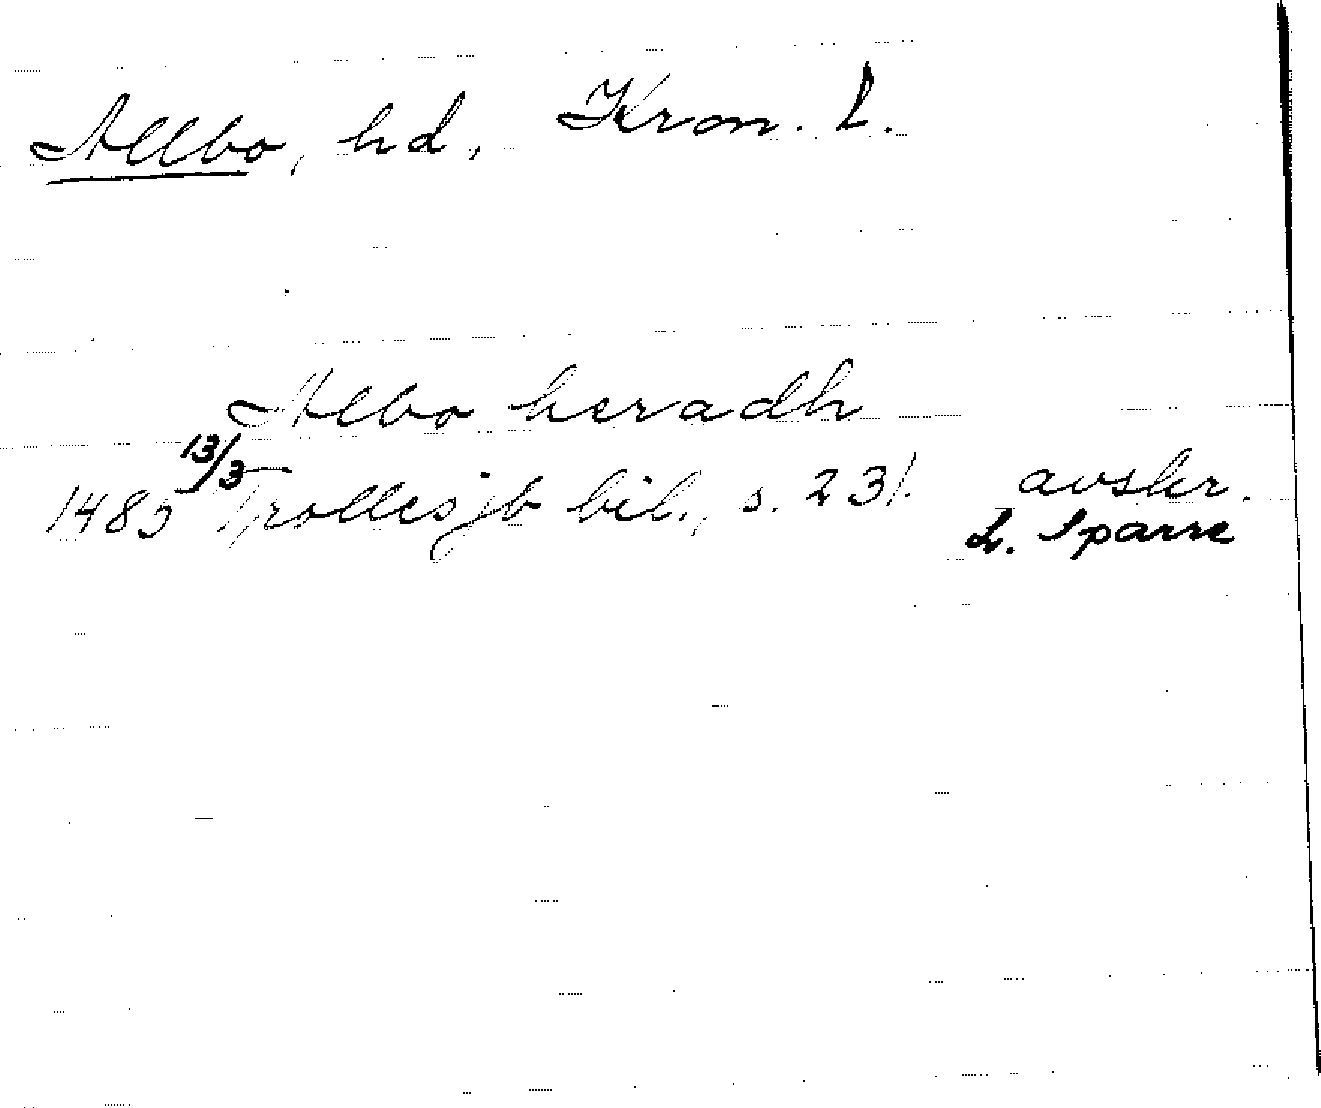 Allbo, hd, Kron. l.
Albo heradh
1485 13/3 Trollesjb bil., s. 231. avskr.
L. Sparre